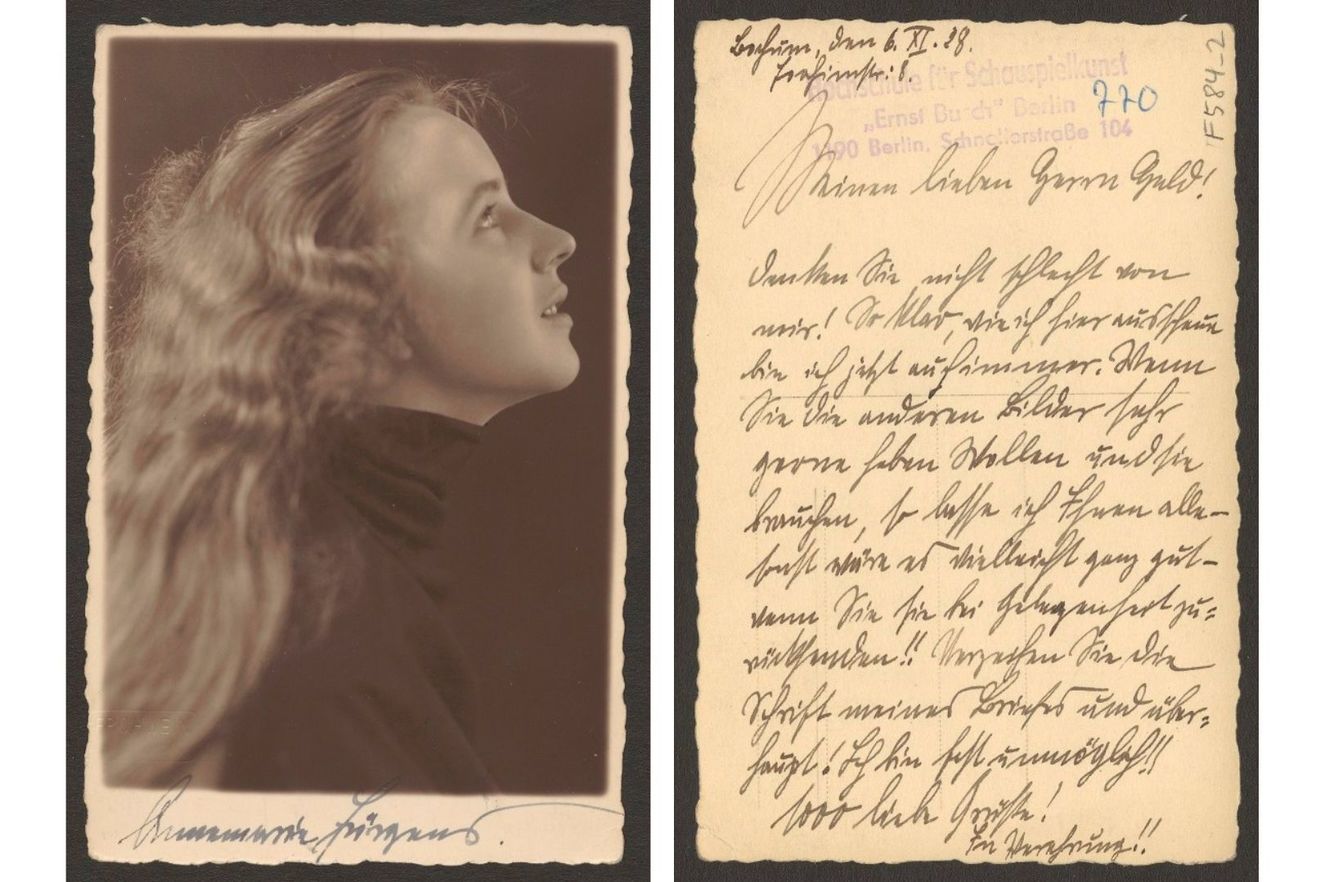 Annemarie Jürgens.
Bochum, den 6. XI. 28.
Hochschule für Schauspielkunst
„Ernst Busch“ Berlin
1190 Berlin, Schnellerstraße 104
770
F584-2
Meinen lieben Herrn Guld!
Denken Sie nicht schlecht von
mir! So klar, wie ich hier ausschaue
bin ich jetzt auch immer. Wenn
Sie die anderen Bilder sehr
gerne haben wollen und sie
brauchen, so lasse ich Ihnen alle –
sonst wäre es vielleicht ganz gut –
wenn Sie sie bei Gelegenheit zu=
rücksenden!! Verzeihen Sie die
Schrift meines Briefes und über=
haupt! Ich bin fast unmöglich!!
1000 liebe Grüße!
In Verehrung!!